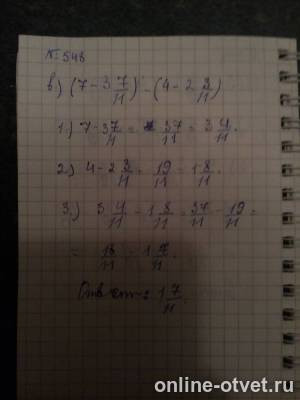 № 548
в) (7 - 3 7/11) - (4 - 2 3/11)
1.) 7 - 3 7/11 = 37/11 = 3 4/11.
2.) 4 - 2 3/11 = 19/11 = 1 8/11.
3.) 3 4/11 - 1 8/11 = 37/11 - 19/11 =
= 18/11 = 1 7/11.
Ответ: 1 7/11.
online-otvet.ru